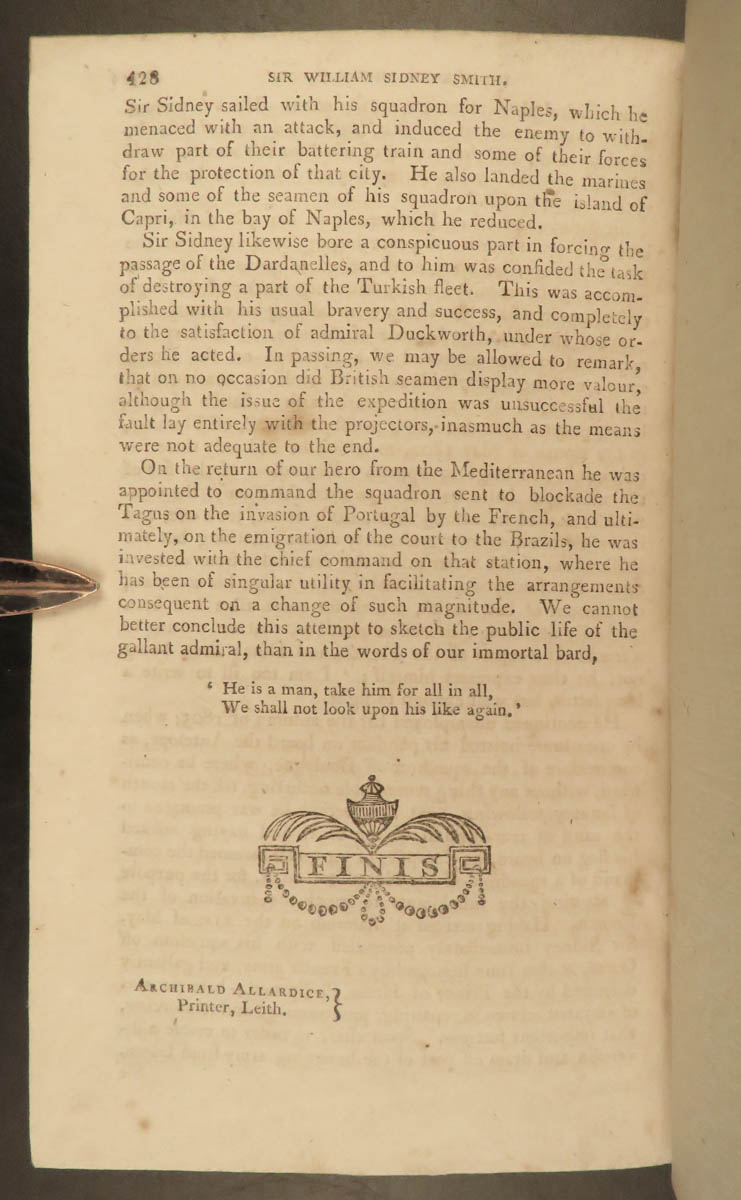 428 SIR WILLIAM SIDNEY SMITH.
Sir Sidney sailed with his squadron for Naples, which he
menaced with an attack, and induced the enemy to with-
draw part of their battering train and some of their forces
for the protection of that city. He also landed the marines
and some of the seamen of his squadron upon the island of
Capri, in the bay of Naples, which he reduced.
Sir Sidney likewise bore a conspicuous part in forcing the
passage of the Dardanelles, and to him was confided the task
of destroying a part of the Turkish fleet. This was accom-
plished with his usual bravery and success, and completely
to the satisfaction of admiral Duckworth, under whose or-
ders he acted. In passing, we may be allowed to remark,
that on no occasion did British seamen display more valour,
although the issue of the expedition was unsuccessful the
fault lay entirely with the projectors, inasmuch as the means
were not adequate to the end.
On the return of our hero from the Mediterranean he was
appointed to command the squadron sent to blockade the
Tagus on the invasion of Portugal by the French, and ulti-
mately, on the emigration of the court to the Brazils, he was
invested with the chief command on that station, where he
has been of singular utility in facilitating the arrangements
consequent on a change of such magnitude. We cannot
better conclude this attempt to sketch the public life of the
gallant admiral, than in the words of our immortal bard,
‘ He is a man, take him for all in all,
We shall not look upon his like again.’
FINIS
ARCHIBALD ALLARDICE, }
Printer, Leith.